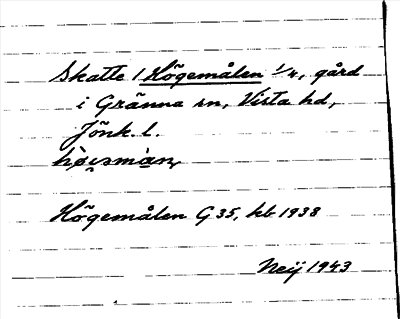 Skatte 1 Högemålen 1/4, gård
i Gränna sn, Vista hd,
Jönk. l.
Högemålen G 35, kb 1938
Neij 1943